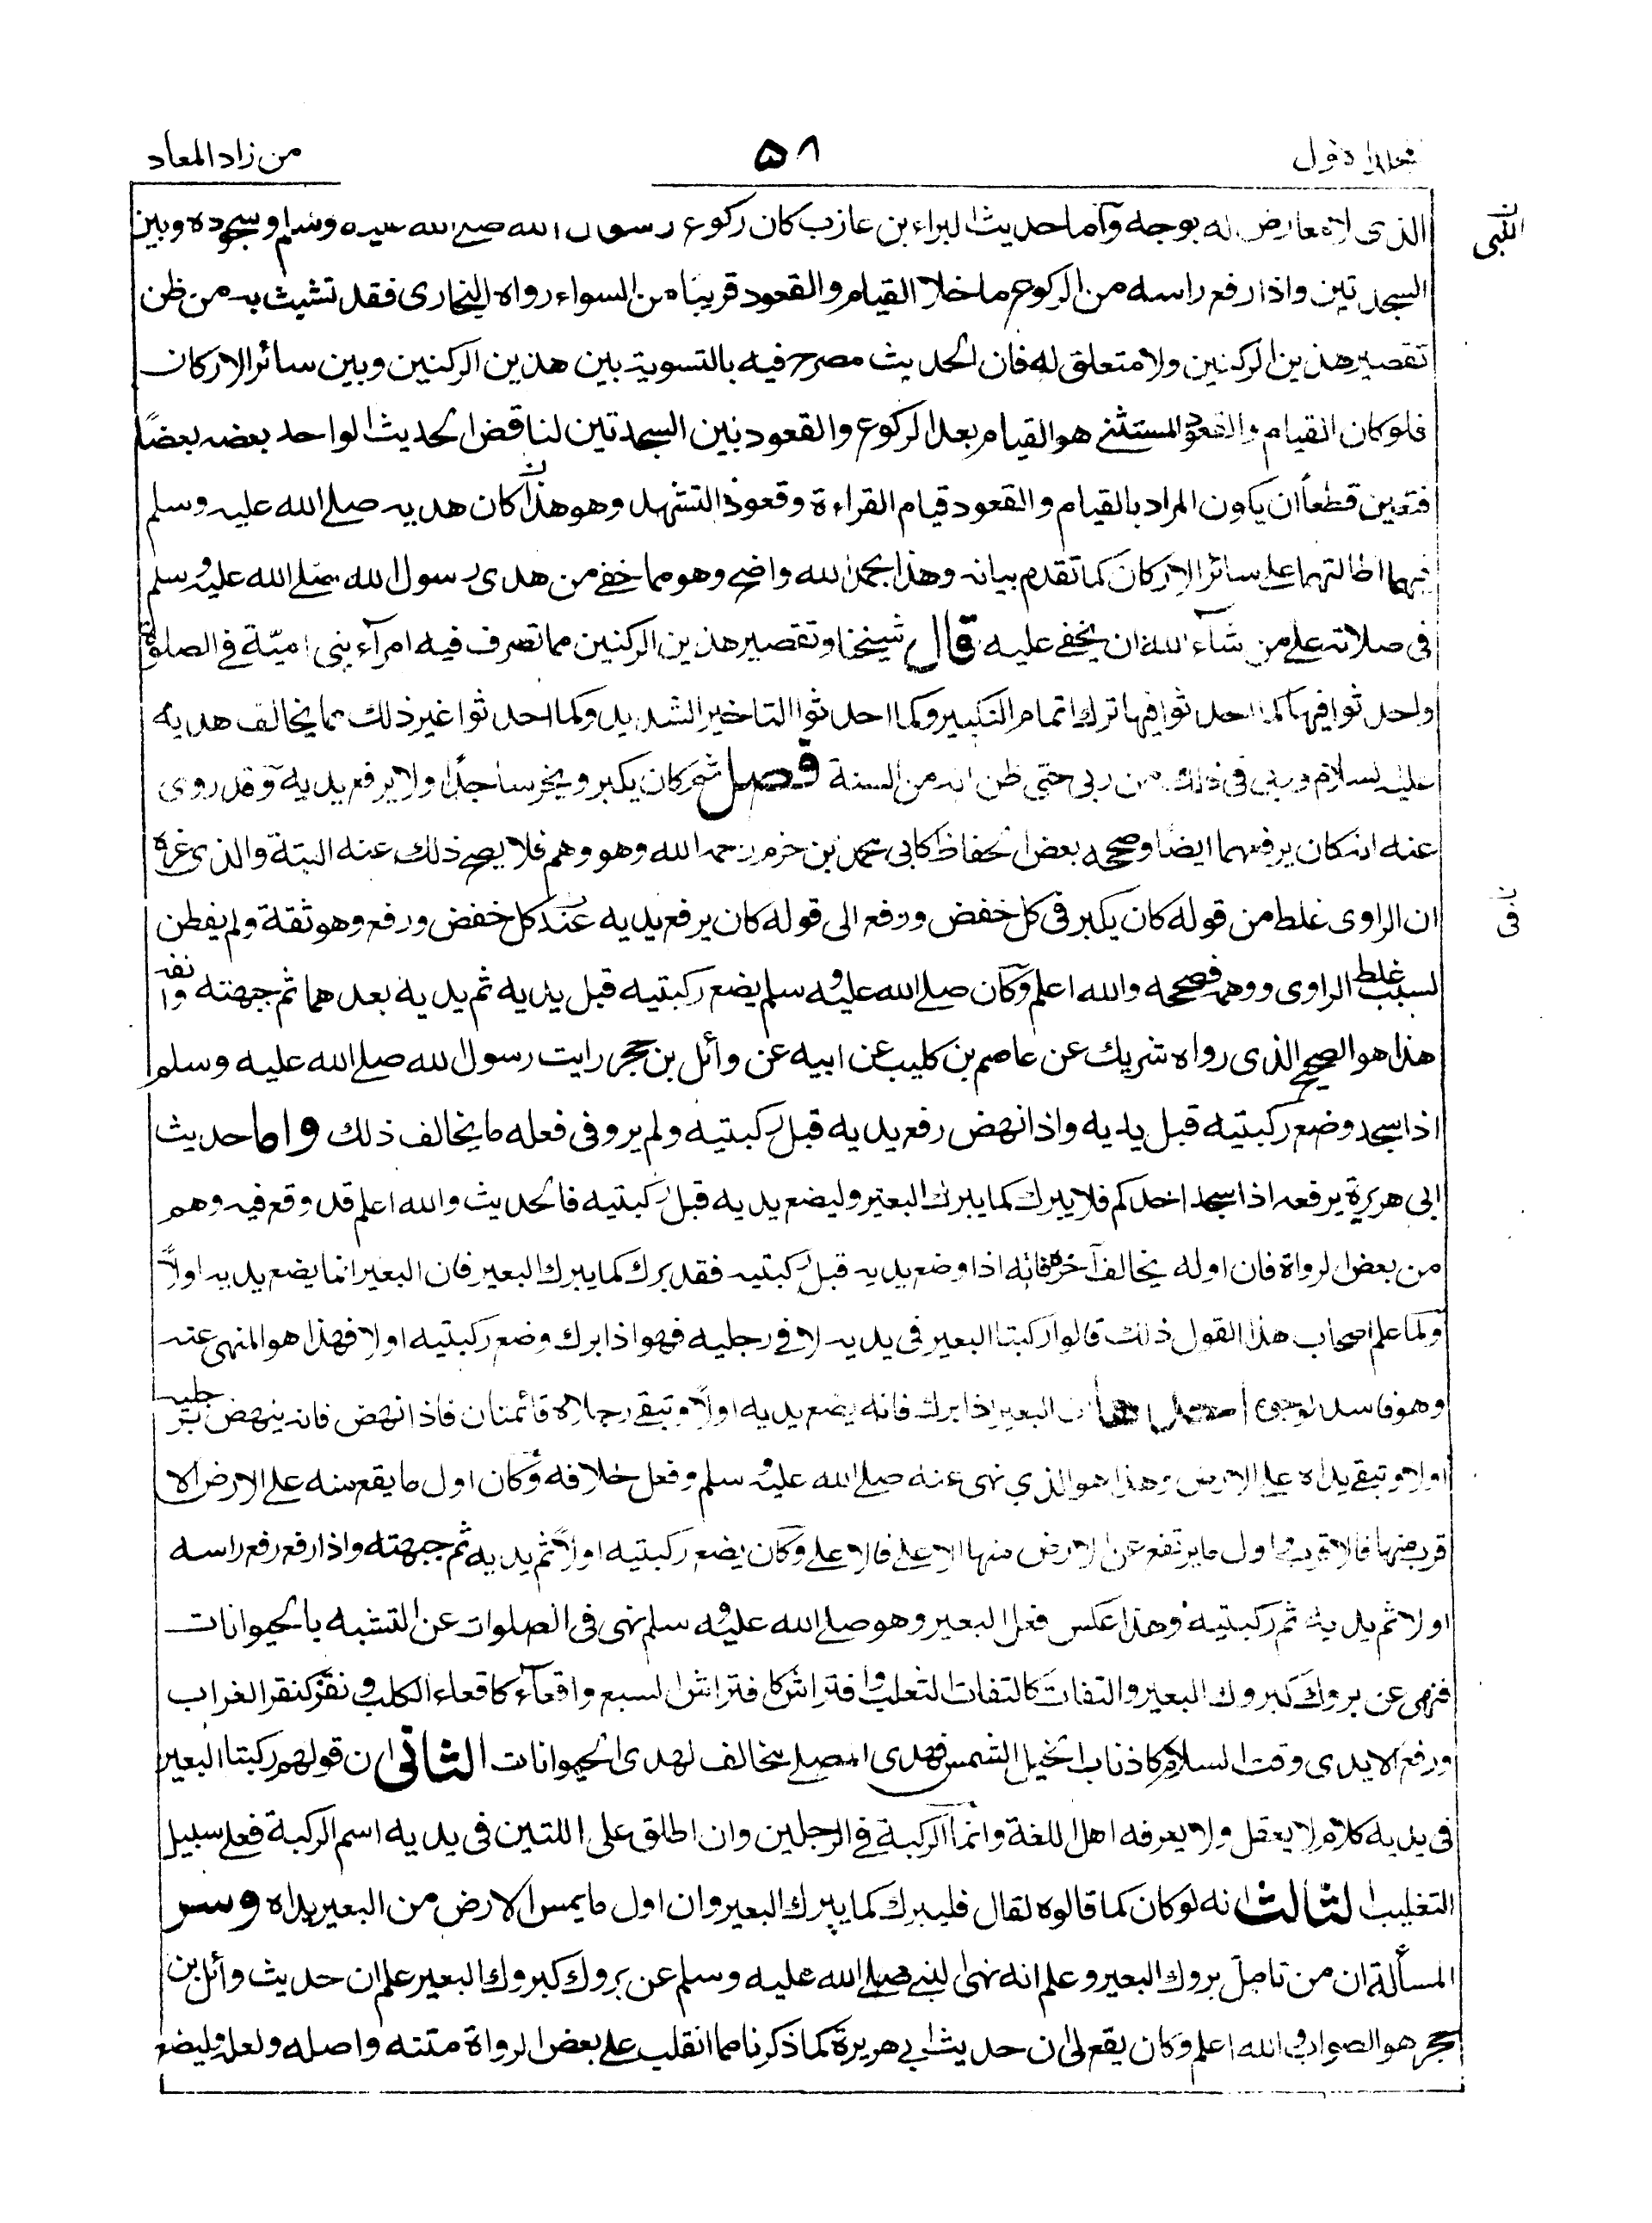 من زاد المعاد
۵۸
الذى لا معارض له بوجه وآما حديث البراء بن عازب كان ركوع رسول الله صلے الله عليه وسلم وسجوده وبين
النبى
السجدتين واذا رفع راسه من الركوع ما خلا القيام والقعود قريبا من السواء رواه البخارى فقد تشبث به من ظن
تقصير هذين الركنين ولا متعلق له فان الحديث مصرح فيه بالتسوية بين هذين الركنين وبين سائر الاركان
فلو كان القيام والقعود المستثنے هو القيام بعد الركوع والقعود بين السجدتين لناقض الحديث الواحد بعضه بعضًا
فتعين قطعاً ان يكون المراد بالقيام والقعود قيام القراءة وقعود التشهد وهو هذا كان هديه صلے الله عليه وسلم
فيهما اطالتهما علے سائر الاركان كما تقدم بيانه وهذا بحمد الله واضح وهو مما خفے من هدى رسول الله صلے الله عليه وسلم
فى صلاته علے من شآء الله ان يخفے عليه قال شيخنا وتقصير هذين الركنين مما تصرف فيه امرآء بنى اميّة فے الصلوة
واحدثوا فيها كما احدثوا فيها ترك اتمام التكبير وكما احدثوا التاخير الشديد وكما احدثوا غير ذلك مما يخالف هديه
عليه السلام وربى فى ذلك من ربى حتى ظن انه من السنة فصل ثم كان يكبر ويخر ساجدًا ولا يرفع يديه وقد روى
عنه انه كان يرفعهما ايضًا وصححه بعض الحفاظ كابى محمد بن حزم رحمه الله وهو وهم فلا يصح ذلك عنه البتة والذى غره
ان الراوى غلط من قوله كان يكبر فى كل خفض ورفع الى قوله كان يرفع يديه عند كل خفض ورفع وهو ثقة ولم يفطن
فى
لسبب غلط الراوى ووهمه فصححه والله اعلم وكان صلے الله عليه وسلم يضع ركبتيه قبل يديه ثم يديه بعدهما ثم جبهته وانفه
هذا هو الصحيح الذى رواه شريك عن عاصم بن كليب عن ابيه عن وائل بن حجر رايت رسول الله صلے الله عليه وسلم
اذا سجد وضع ركبتيه قبل يديه واذا نهض رفع يديه قبل ركبتيه ولم يرو فى فعله ما يخالف ذلك واما حديث
ابى هريرة يرفعه اذا سجد احدكم فلا يبرك كما يبرك البعير وليضع يديه قبل ركبتيه فالحديث والله اعلم قد وقع فيه وهم
من بعض الرواة فان اوله يخالف آخره فانه اذا وضع يديه قبل ركبتيه فقد برك كما يبرك البعير فان البعير انما يضع يديه اولاً
ولما علم اصحاب هذا القول ذلك قالوا ركبتا البعير فى يديه لا فے رجليه فهو اذا برك وضع ركبتيه اولا فهذا هو المنهى عنه
وهو فاسد لوجوه احدها ان البعير اذا برك فانه يضع يديه اولاً وتبقے رجلاه قائمتان فاذا نهض فانه ينهض برجليه
اولا وتبقے يداه علے الارض وهذا هو الذي نهى عنه صلے الله عليه وسلم وفعل خلافه وكان اول ما يقع منه علے الارض الا
قرب منها فالاقرب واول ما يرتفع عن الارض منها الاعلے فالاعلے وكان يضع ركبتيه اولاً ثم يديه ثم جبهته واذا رفع رفع راسه
اولا ثم يديه ثم ركبتيه وهذا عكس فعل البعير وهو صلے الله عليه وسلم نهى فى الصلوات عن التشبه بالحيوانات
فنهى عن بروك كبروك البعير والتفات كالتفات الثعلب وافتراش كافتراش السبع واقعآء كاقعاء الكلب ونقر كنقر الغراب
ورفع الايدى وقت السلام كاذناب الخيل الشمس فهدى المصلے يخالف لهدى الحيوانات الثانى ان قولهم ركبتا البعير
فى يديه كلام لا يعقل ولا يعرفه اهل اللغة وانما الركبة فے الرجلين وان اطلق على اللتين فى يديه اسم الركبة فعلے سبيل
التغليب الثالث انه لو كان كما قالوه لقال فليبرك كما يبرك البعير وان اول ما يمس الارض من البعير يداه وسر
المسألة ان من تامل بروك البعير وعلم انه نهى النبے صلے الله عليه وسلم عن بروك كبروك البعير علم ان حديث وائل بن
حجر هو الصواب والله اعلم وكان يقع لى ان حديث ابے هريرة كما ذكرنا مما انقلب علے بعض الرواة متنه واصله ولعله وليضع